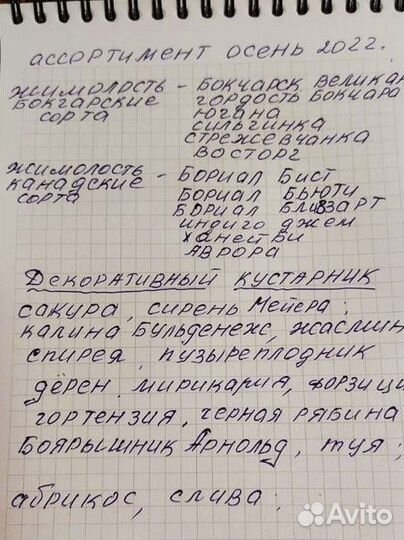 ассортимент осень 2022.
жимолость - бокчарск. великан
бокчарские гордость бокчара
сорта югана
сильгинка
стрежевчанка
восторг
жимолость - бориал бист
канадские бориал бьюти
сорта бориал близзарт
индиго джем
ханей би
аврора
Декоративный кустарник
сакура, сирень Мейера;
калина Бульденеж, жасмин
спирея, пузыреплодник
дёрен, мирикария, форзици
гортензия, черная рябина
Боярышник Арнольд, туя;
абрикос, слива;
Avito